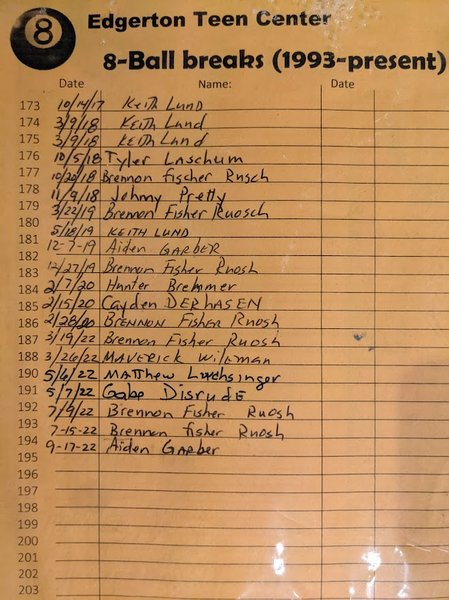 8
Edgerton Teen Center
8-Ball breaks (1993-present)
Date Name: Date
173 10/14/17 Keith Lund
174 3/9/18 Keith Lund
175 3/9/18 Keith Lund
176 10/5/18 Tyler Laschum
177 10/20/18 Brennon fischer Rusch
178 11/9/18 Johny Pretty
179 3/22/19 Brennon Fisher Ruosch
180 5/18/19 KEITH LUND
181 12-7-19 Aiden GARBER
182
183 12/27/19 Brennon Fisher Ruosh
184 2/7/20 Hunter Bremmer
185 2/15/20 Cayden DERHASEN
186 2/28/20 BRENNON FISHER Ruosh
187 3/19/22 Brennon Fisher Ruosh
188 3/26/22 MAVERICK Wileman
190 5/6/22 MATThew Luchsinger
191 5/7/22 Gabe DisrudE
192 7/9/22 Brennon Fisher Ruosh
193 7-15-22 Brennon fisher Ruosh
194 9-17-22 Aiden GARber
195
196
197
198
199
200
201
202
203